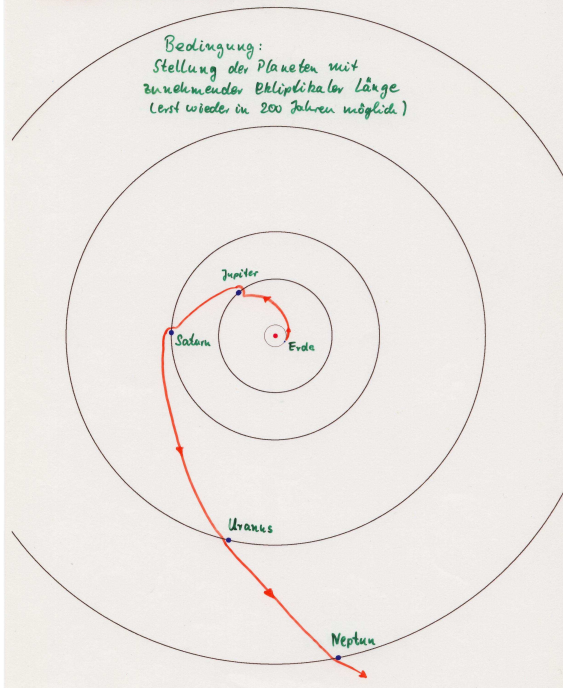 Bedingung:
Stellung der Planeten mit
zunehmender Ekliptikaler Länge
(erst wieder in 200 Jahren möglich)
Jupiter
Saturn
Erde
Uranus
Neptun